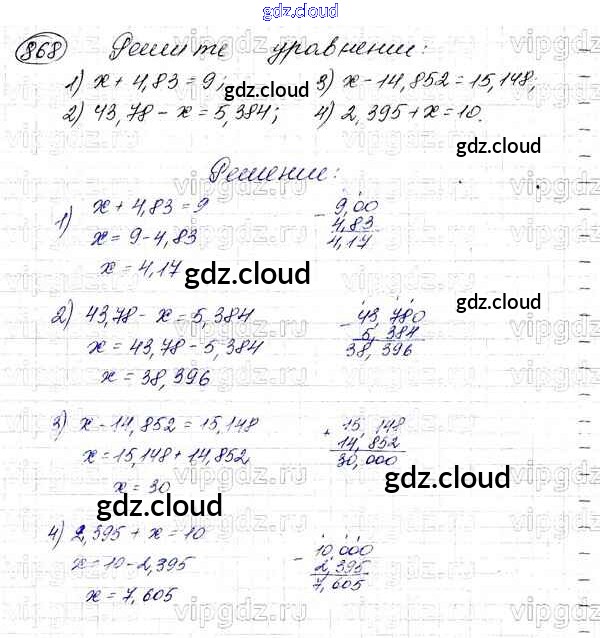 gdz.cloud
868 Решите уравнение:
1) x + 4,83 = 9; 3) x - 14,852 = 15,148;
2) 43,78 - x = 5,384; 4) 2,395 + x = 10.
gdz.cloud
gdz.cloud
Решение:
1) x + 4,83 = 9
x = 9 - 4,83
x = 4,17
- 9,00
4,83
4,17
gdz.cloud
gdz.cloud
2) 43,78 - x = 5,384
x = 43,78 - 5,384
x = 38,396
- 43,780
5,384
38,396
3) x - 14,852 = 15,148
x = 15,148 + 14,852
x = 30
+ 15,148
14,852
30,000
gdz.cloud
gdz.cloud
4) 2,395 + x = 10
x = 10 - 2,395
x = 7,605
- 10,000
2,395
7,605
vipgdz.ru